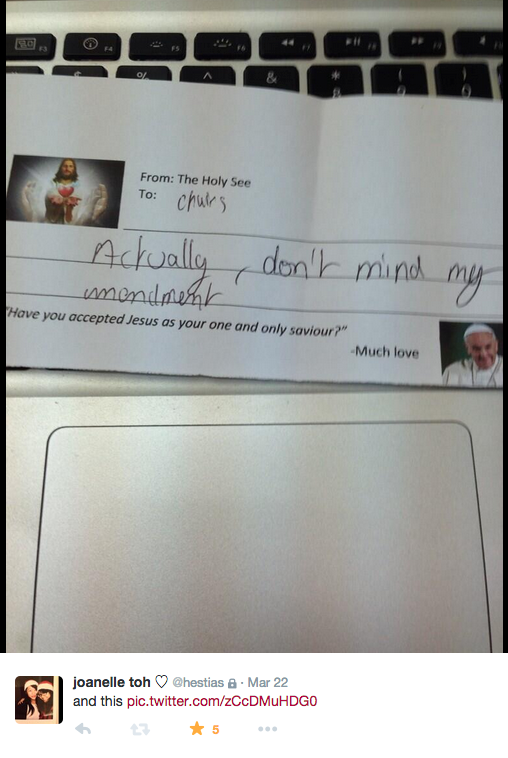 F3 F4 F5 F6 F7 F8
% ^ & * ( )
8 9 0
From: The Holy See
To: chairs
Actually, don't mind my
amendment
"Have you accepted Jesus as your one and only saviour?"
-Much love
joanelle toh ♡ @hestias · Mar 22
and this pic.twitter.com/zCcDMuHDG0
5